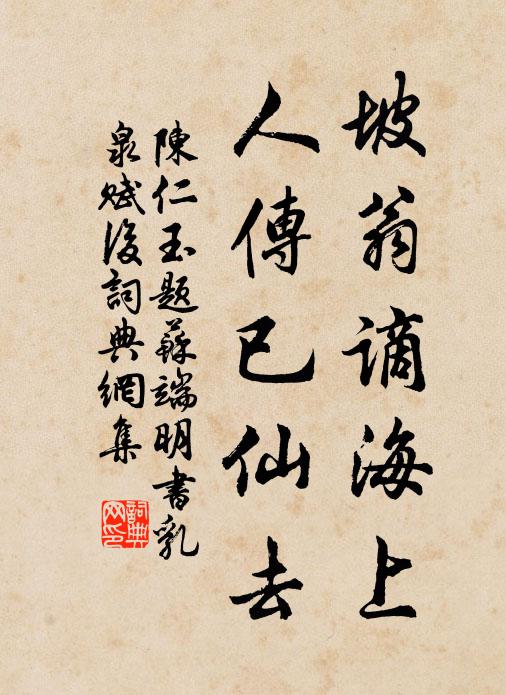 坡翁謫海上
人傳已仙去
陳仁玉題蘇端明書乳
泉賦後詞典網集
詞典
网印